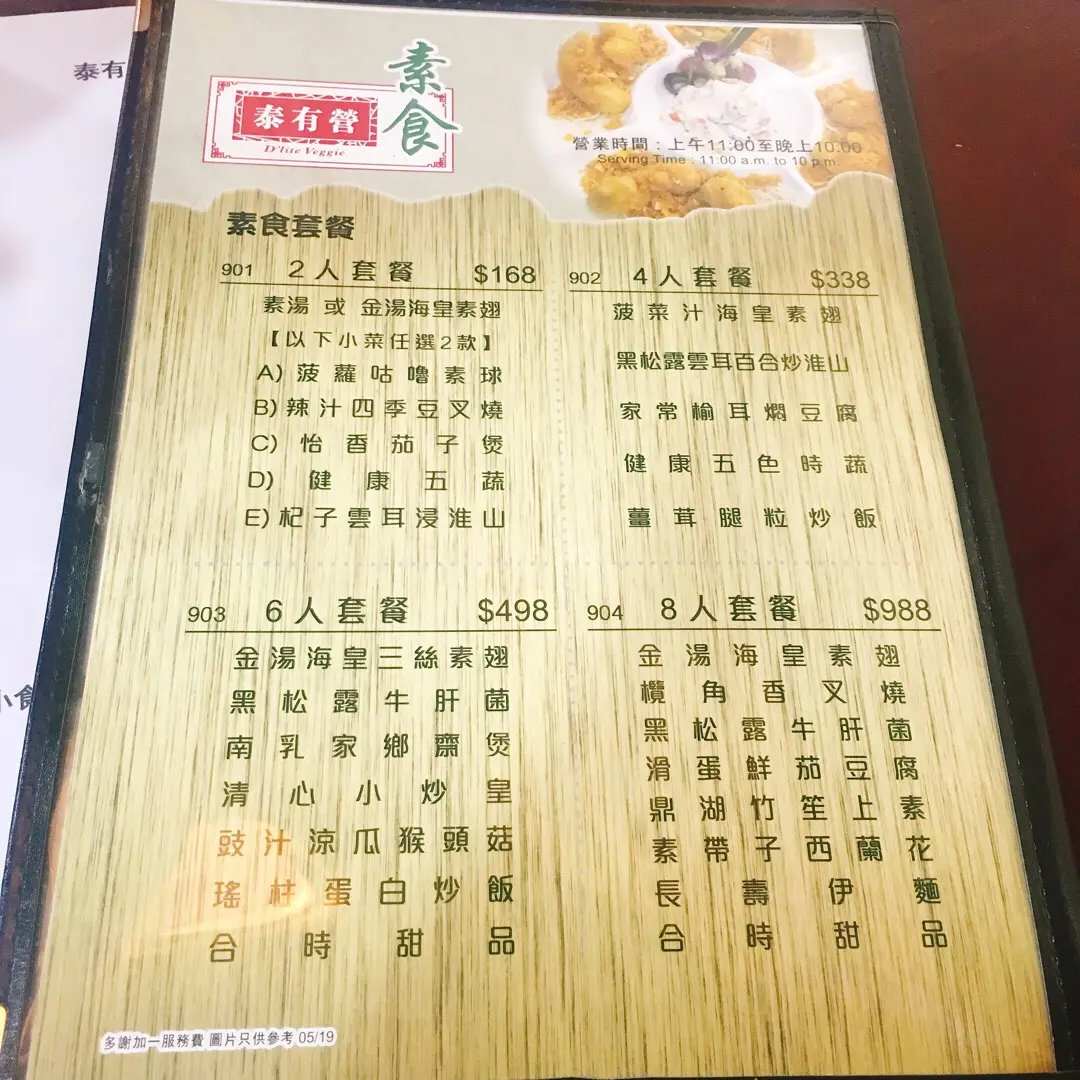 泰有
素食
泰有營
D'lite Veggie
營業時間：上午11:00至晚上10:00
Serving Time : 11:00 a.m. to 10 p.m.
素食套餐
901 2人套餐 $168
素湯 或 金湯海皇素翅
【以下小菜任選2款】
A) 菠蘿咕嚕素球
B) 辣汁四季豆叉燒
C) 怡香茄子煲
D) 健康五蔬
E) 杞子雲耳浸淮山
902 4人套餐 $338
菠菜汁海皇素翅
黑松露雲耳百合炒淮山
家常榆耳燜豆腐
健康五色時蔬
薑茸腿粒炒飯
903 6人套餐 $498
金湯海皇三絲素翅
黑松露牛肝菌
南乳家鄉齋煲
清心小炒皇
豉汁涼瓜猴頭菇
瑤柱蛋白炒飯
合時甜品
904 8人套餐 $988
金湯海皇素翅
欖角香叉燒
黑松露牛肝菌
滑蛋鮮茄豆腐
鼎湖竹笙上素
素帶子西蘭花
長壽伊麵
合時甜品
小食
多謝加一服務費 圖片只供參考 05/19